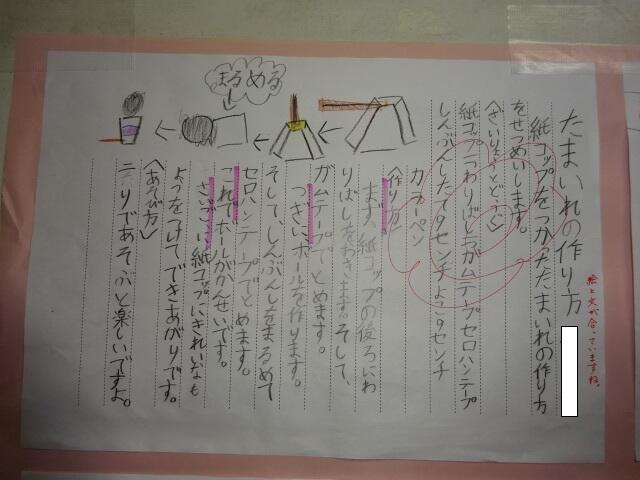 たまいれの作り方
絵と文が合っていますね。
紙コップをつかったたまいれの作り方
をせつめいします。
〈ざいりょうとどうぐ〉
紙コップ二つわりばし一つガムテープセロハンテープ
しんぶんしたて9センチよこ9センチ
カラーペン
〈作り方〉
まず、紙コップの後ろにわ
りばしをおきます。そして、
ガムテープでとめます。
つぎに、ボールを作ります。
そして、しんぶんしをまるめて
セロハンテープでとめます。
これでボールがかんせいです。
さいごに紙コップにきれいなも
ようをつけてできあがりです。
〈あそび方〉
二人りであそぶと楽しいですよ。
まるめる